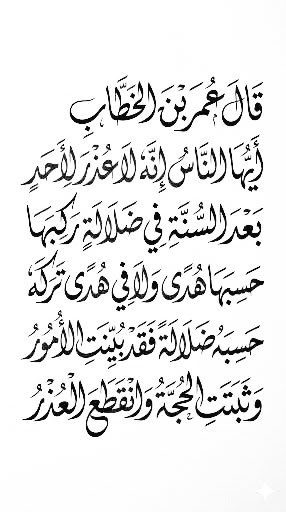 قَالَ عُمَرَ بْنَ الخَطَّابِ
أَيُّهَا النَّاسُ إِنَّهُ لَا عُذْرَ لِأَحَدٍ
بَعْدَ السُّنَّةِ فِي ضَلَالَةٍ رَكِبَهَا
حَسِبَهَا هُدًى وَلَا فِي هُدًى تَرَكَهُ
حَسِبَهُ ضَلَالَةً فَقَدْ بُيِّنَتِ الأُمُورُ
وَثَبَتَتِ الحُجَّةُ وَانْقَطَعَ الْعُذْرُ